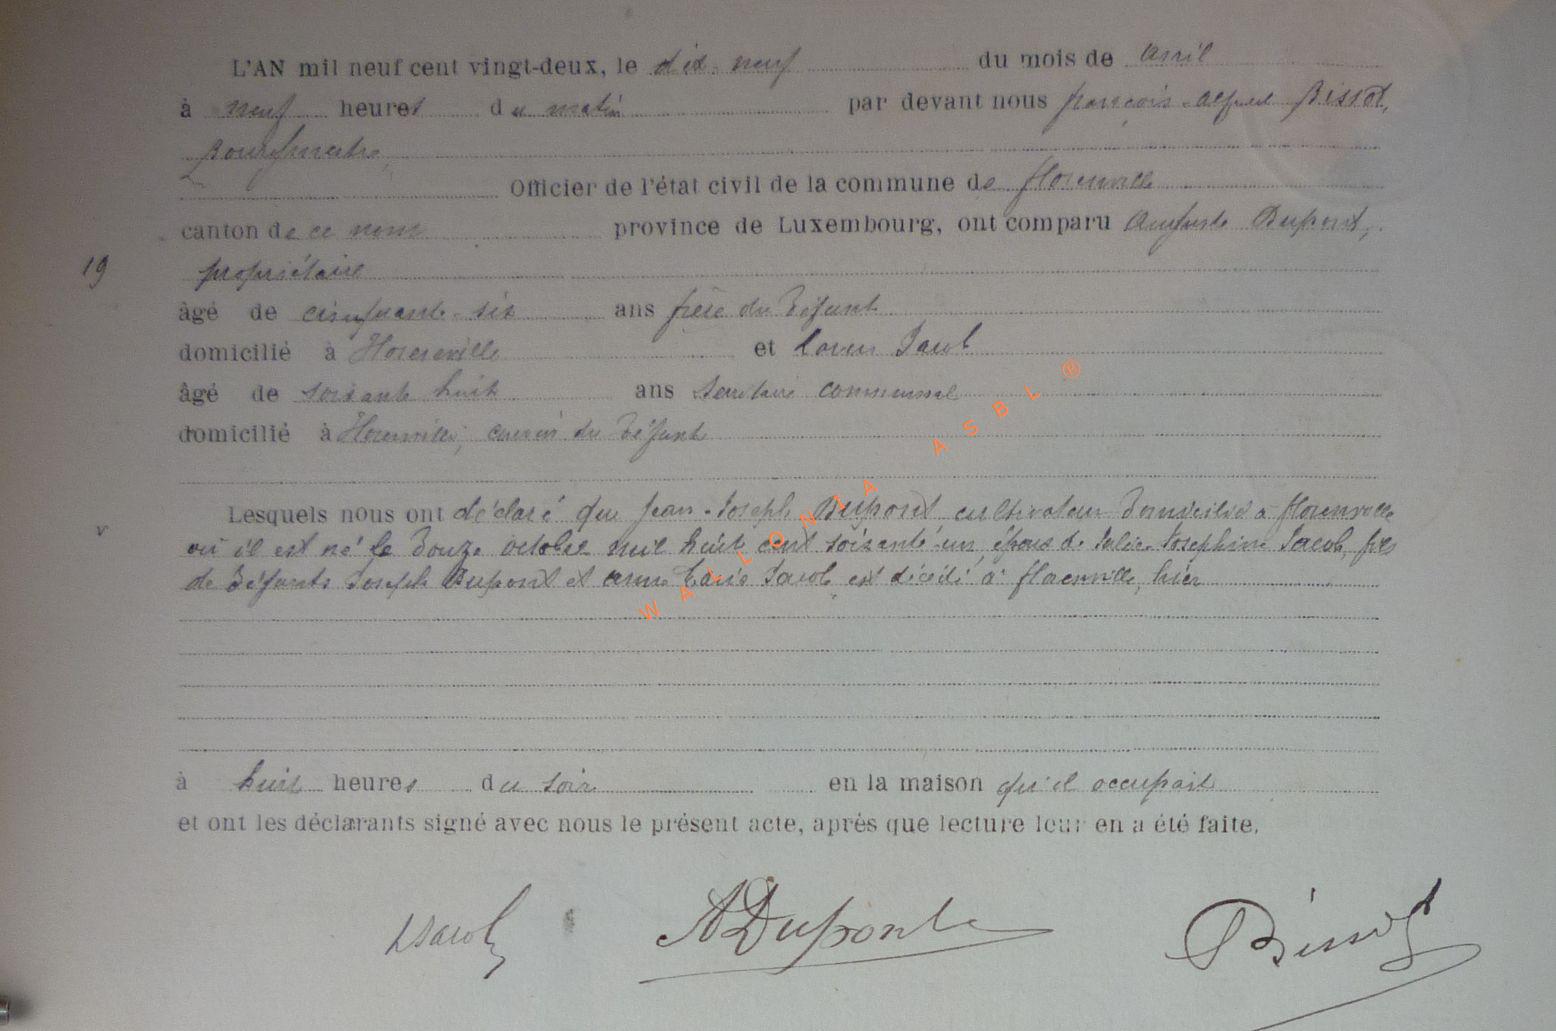 L'AN mil neuf cent vingt-deux, le dix-neuf du mois de avril
à neuf heures du matin par devant nous françois-alfred Bissot,
Bourgmestre,
Officier de l'état civil de la commune de florenville
canton de ce nom province de Luxembourg, ont comparu auguste Dupont,
19 propriétaire
âgé de cinquante-six ans frère du défunt
domicilié à Florenville et Jacob
âgé de soixante huit ans secrétaire communal
domicilié à Florenville, cousin du défunt
Lesquels nous ont déclaré que jean-Joseph Dupont cultivateur domicilié à florenville
où il est né le douze octobre mil huit cent soixante-un époux de Julie-Josephine Jacob, fils
de défunts Joseph Dupont et anne Marie Jacob est décédé à florenville, hier
à huit heures du soir en la maison qu'il occupait
et ont les déclarants signé avec nous le présent acte, après que lecture leur en a été faite.
LJacob ADupont Bissot
WALLONIA ASBL ®